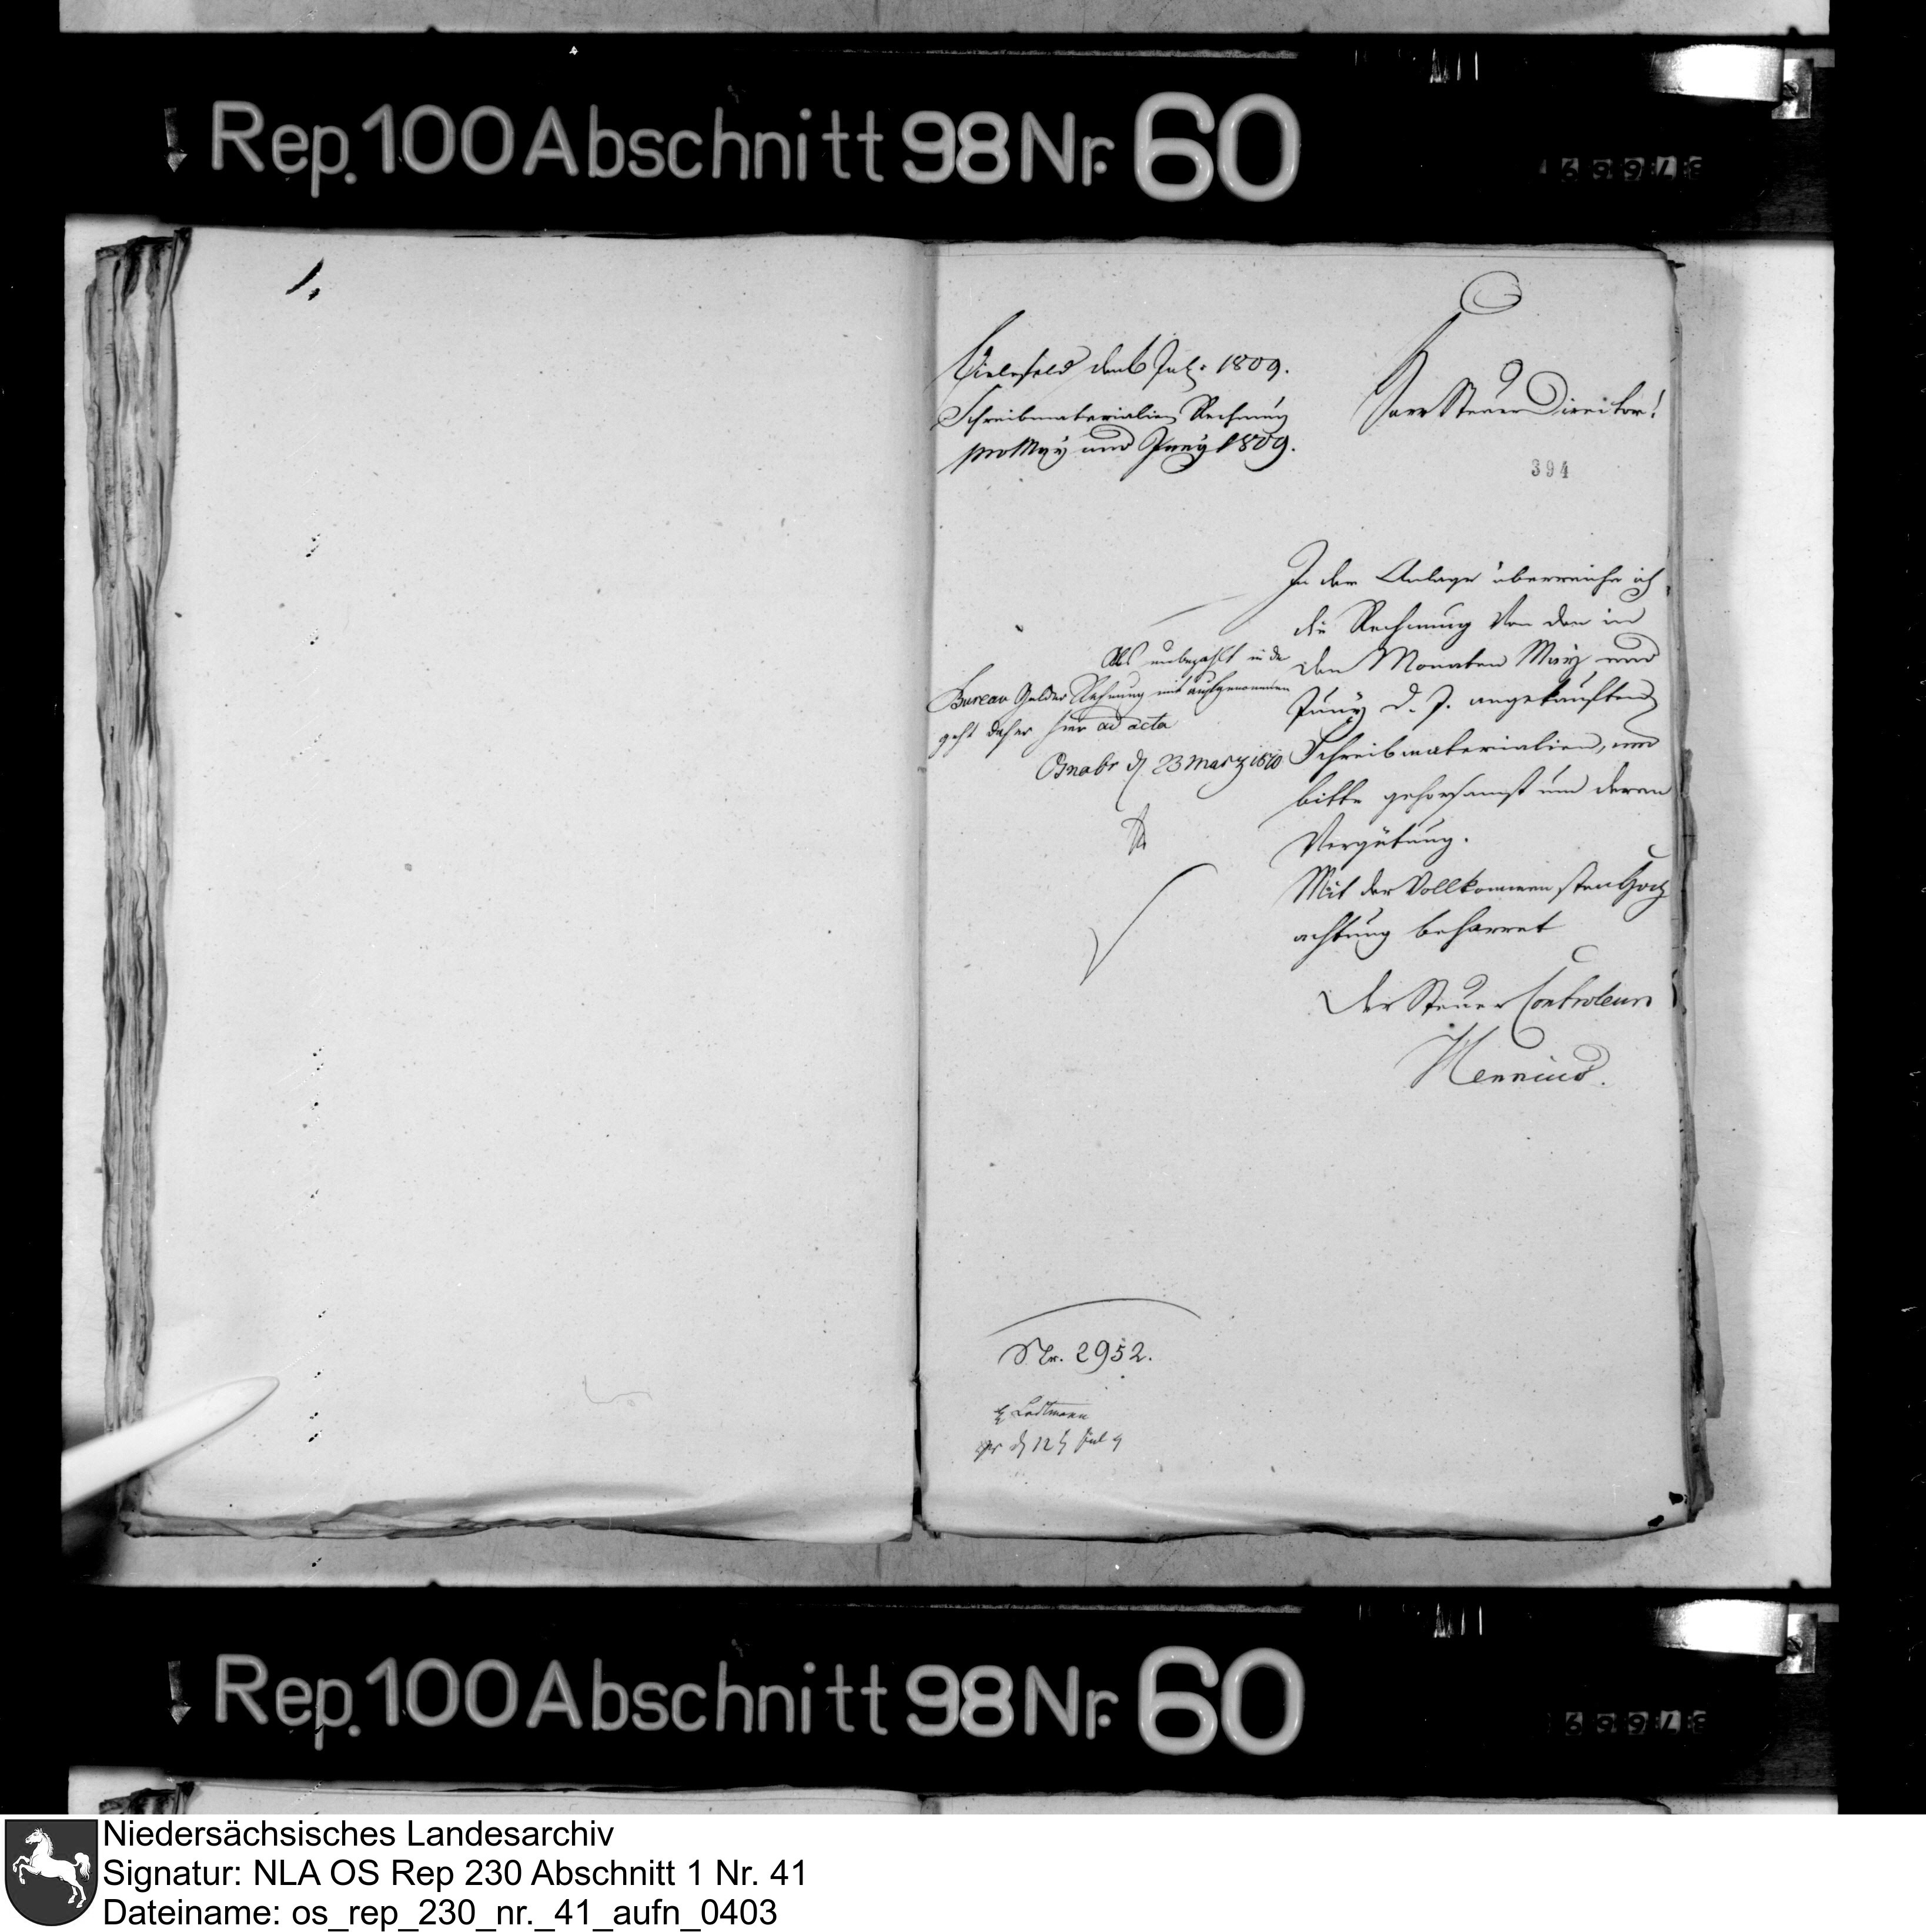 Rep. 100 Abschnitt 98 Nr. 60
1.
Bielefeld den 6 Jul: 1809.
Schreibmaterialien Rechnung
pro May und Juny 1809.
Herr Steuer Director!
394
In der Anlage überreiche ich
die Rechnung von den in
den Monaten May und
Juny d. J. angekauften
Schreibmaterialien, und
bitte gehorsamst um deren
Vergütung.
Mit der Vollkommensten Hoch
achtung beharret
Der Steuer Controleur
Hennius.
Als unbezahlt in de
Bureau Gelder Rechnung mit aufgenommen
geht daher hier ad acta
Osnabr d 23 Marz 1810
Nr. 2952.
Lodtmann
pr d 12 Jul 9
Rep. 100 Abschnitt 98 Nr. 60
Niedersächsisches Landesarchiv
Signatur: NLA OS Rep 230 Abschnitt 1 Nr. 41
Dateiname: os_rep_230_nr._41_aufn_0403